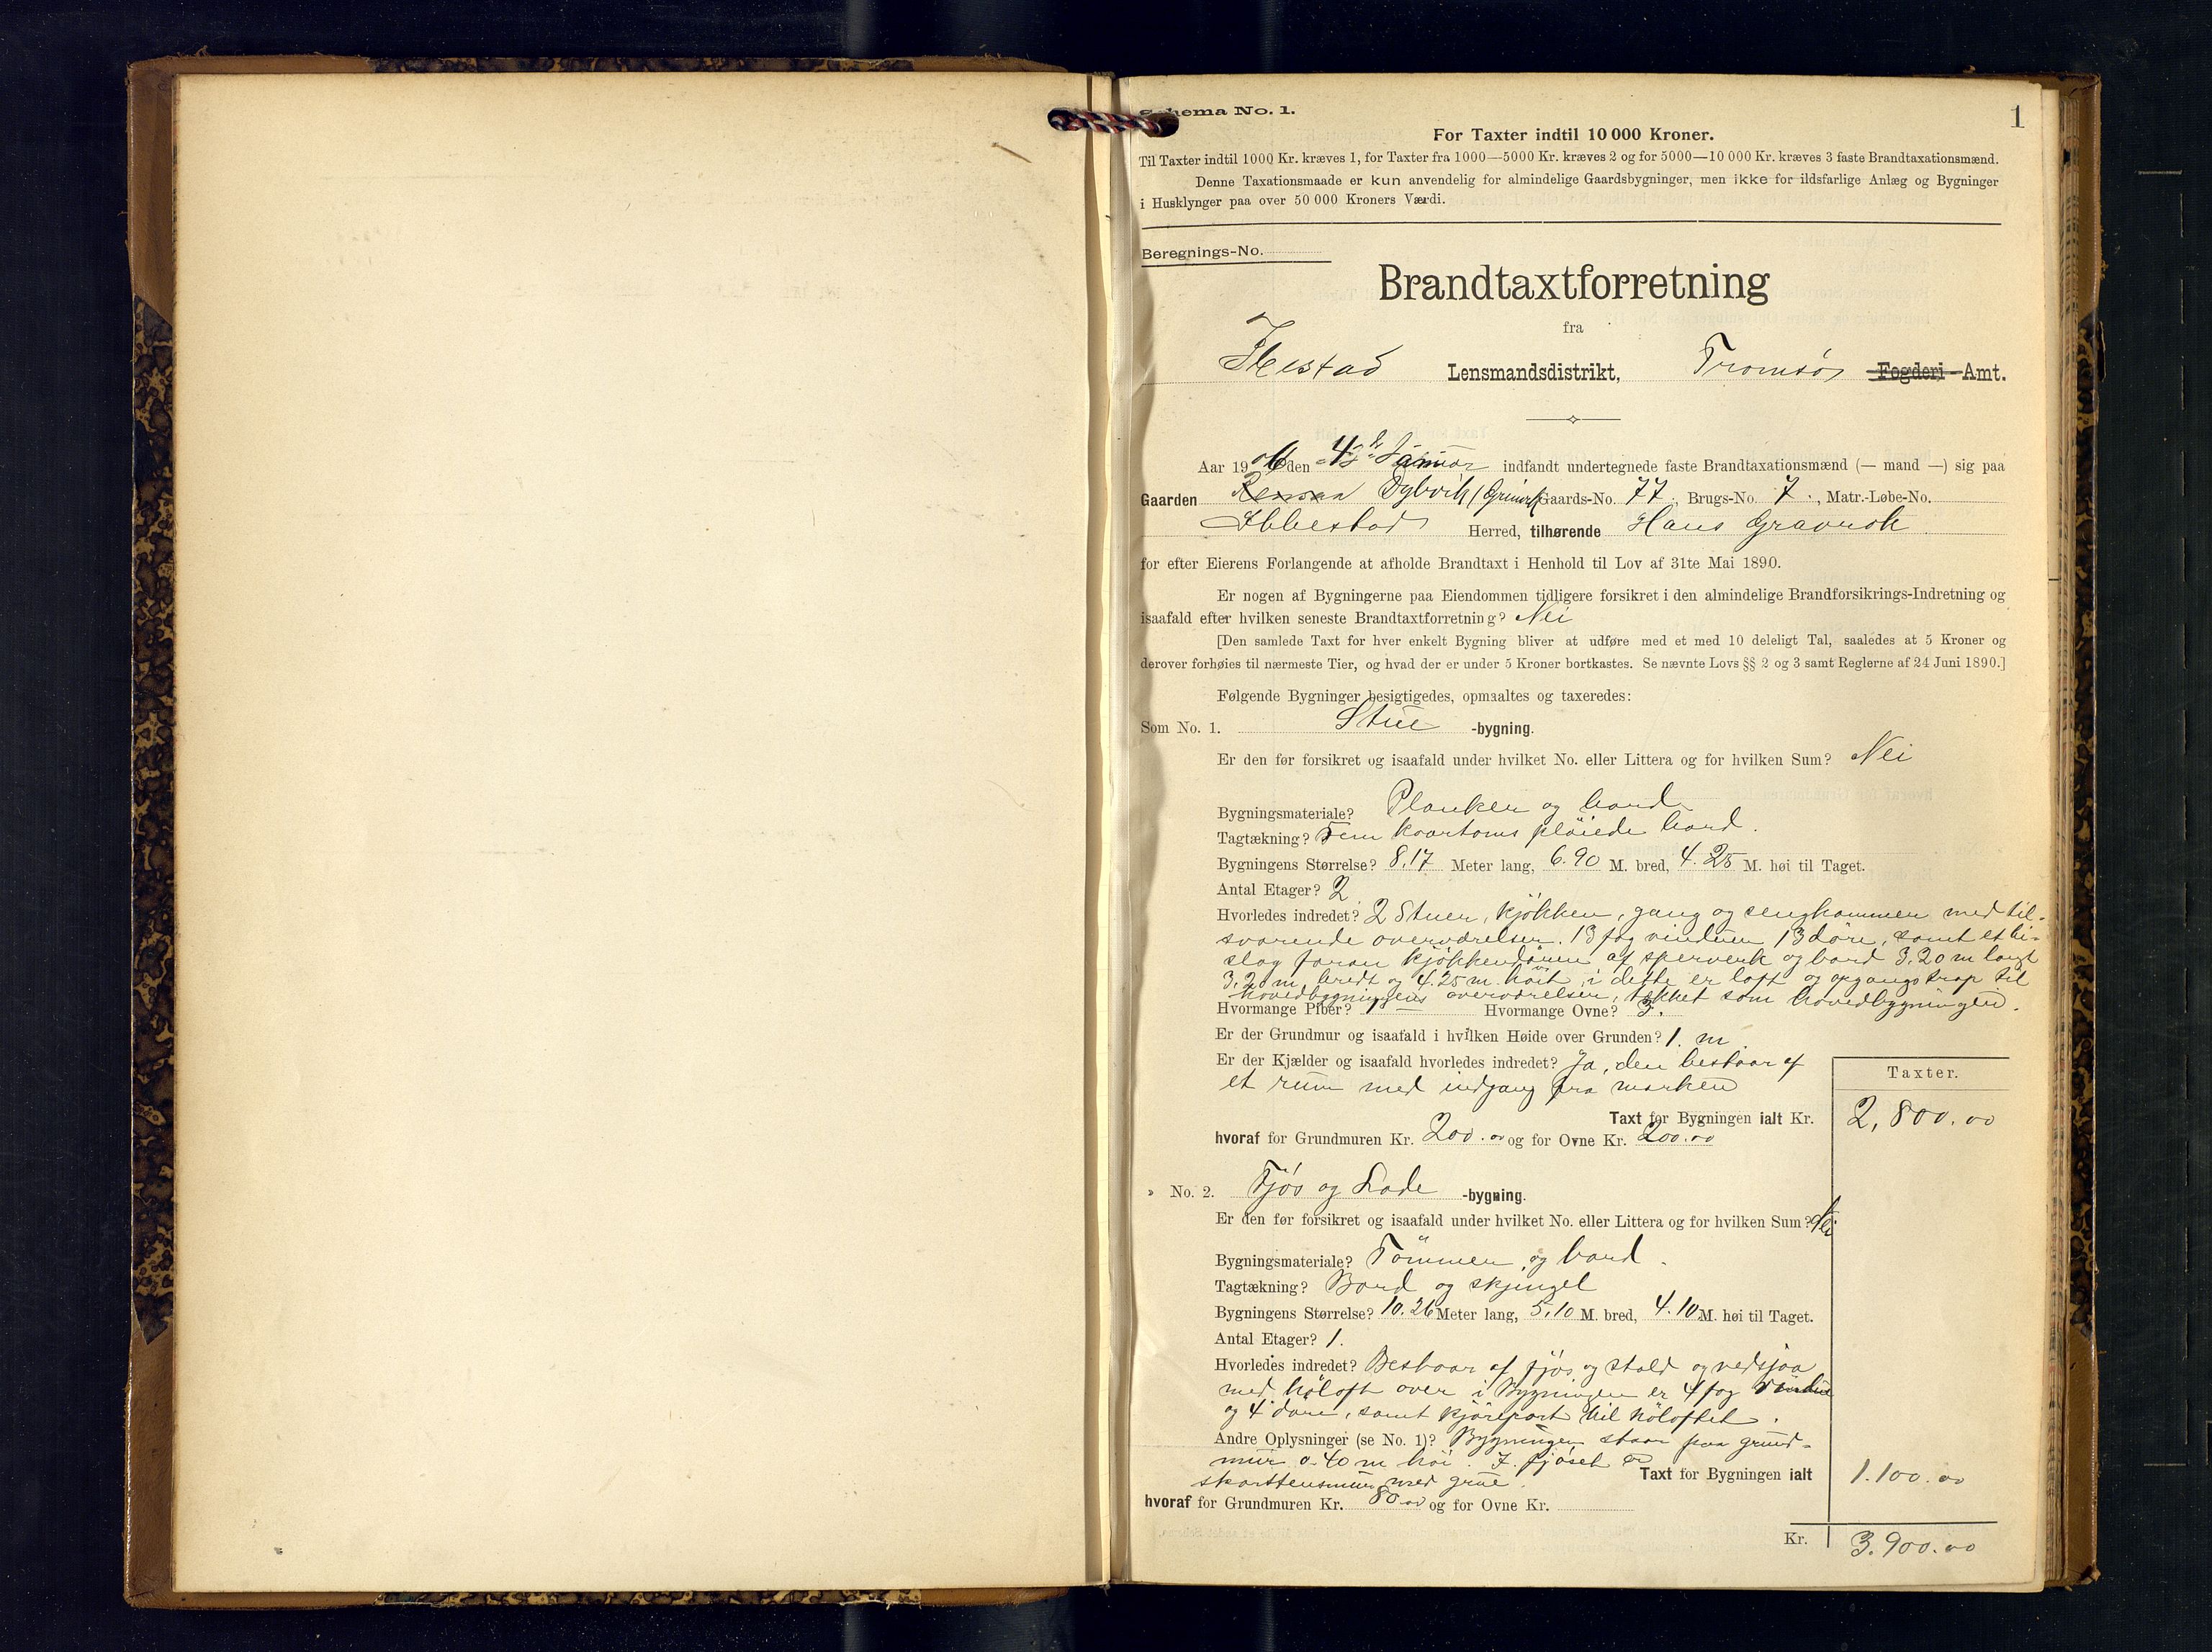 Schema No. 1.
1
For Taxter indtil 10 000 Kroner.
Til Taxter indtil 1000 Kr. kræves 1, for Taxter fra 1000—5000 Kr. kræves 2 og for 5000—10 000 Kr. kræves 3 faste Brandtaxationsmænd.
Denne Taxationsmaade er kun anvendelig for almindelige Gaardsbygninger, men ikke for ildsfarlige Anlæg og Bygninger
i Husklynger paa over 50 000 Kroners Værdi.
Beregnings-No.
Brandtaxtforretning
fra
Ibestad Lensmandsdistrikt, Tromsø Fogderi Amt.
Aar 1906 den 4de Januar indfandt undertegnede faste Brandtaxationsmænd (— mand —) sig paa
Gaarden Dybvik Gaards-No. 77, Brugs-No. 7, Matr.-Løbe-No.
Ibbestad Herred, tilhørende Hans Gravrok
for efter Eierens Forlangende at afholde Brandtaxt i Henhold til Lov af 31te Mai 1890.
Er nogen af Bygningerne paa Eiendommen tidligere forsikret i den almindelige Brandforsikrings-Indretning og
isaafald efter hvilken seneste Brandtaxtforretning? Nei
[Den samlede Taxt for hver enkelt Bygning bliver at udføre med et med 10 deleligt Tal, saaledes at 5 Kroner og
derover forhøies til nærmeste Tier, og hvad der er under 5 Kroner bortkastes. Se nævnte Lovs §§ 2 og 3 samt Reglerne af 24 Juni 1890.]
Følgende Bygninger besigtigedes, opmaaltes og taxeredes:
Som No. 1. Stue -bygning.
Er den før forsikret og isaafald under hvilket No. eller Littera og for hvilken Sum? Nei
Bygningsmateriale? Planker og bord
Tagtækning? Fem kvartoms pløiede bord.
Bygningens Størrelse? 8.17 Meter lang, 6.90 M. bred, 4.25 M. høi til Taget.
Antal Etager? 2
Hvorledes indredet? 2 Stuer, kjøkken, gang og sengkammer med til-
svarende overværelser. 13 fag vinduer 13 døre, samt et bi-
slag foran kjøkkendøren af sperverk og bord 3.20 m langt
3,20 m bredt og 4.25 m høit, i dette er loft og opgangstrap til
hovedbygningens overværelser, tækket som hovedbygningen.
Hvormange Piber? 1 Hvormange Ovne? 3.
Er der Grundmur og isaafald i hvilken Høide over Grunden? 1. m.
Er der Kjælder og isaafald hvorledes indredet? Ja, den bestaar af
et rum med indgang fra marken
Taxter.
Taxt for Bygningen ialt Kr. 2,800.00
hvoraf for Grundmuren Kr. 200.00 og for Ovne Kr. 200.00
» No. 2. Fjøs og Lade -bygning.
Er den før forsikret og isaafald under hvilket No. eller Littera og for hvilken Sum? Nei
Bygningsmateriale? Tømmer og bord.
Tagtækning? Bord og skjingel
Bygningens Størrelse? 10.26 Meter lang, 5.10 M. bred, 4.10 M. høi til Taget.
Antal Etager? 1.
Hvorledes indredet? Bestaar af fjøs og stald og vedsjaa
med høloft over i Bygningen er 4 fag vindue
og 4 døre, samt kjøreport til høloftet.
Andre Oplysninger (se No. 1)? Bygningen staar paa grund-
mur 0.40 m høi. I fjøset er
skorstensmur med grue.
Taxt for Bygningen ialt 1.100.00
hvoraf for Grundmuren Kr. 80.00 og for Ovne Kr.
Kr. 3.900.00